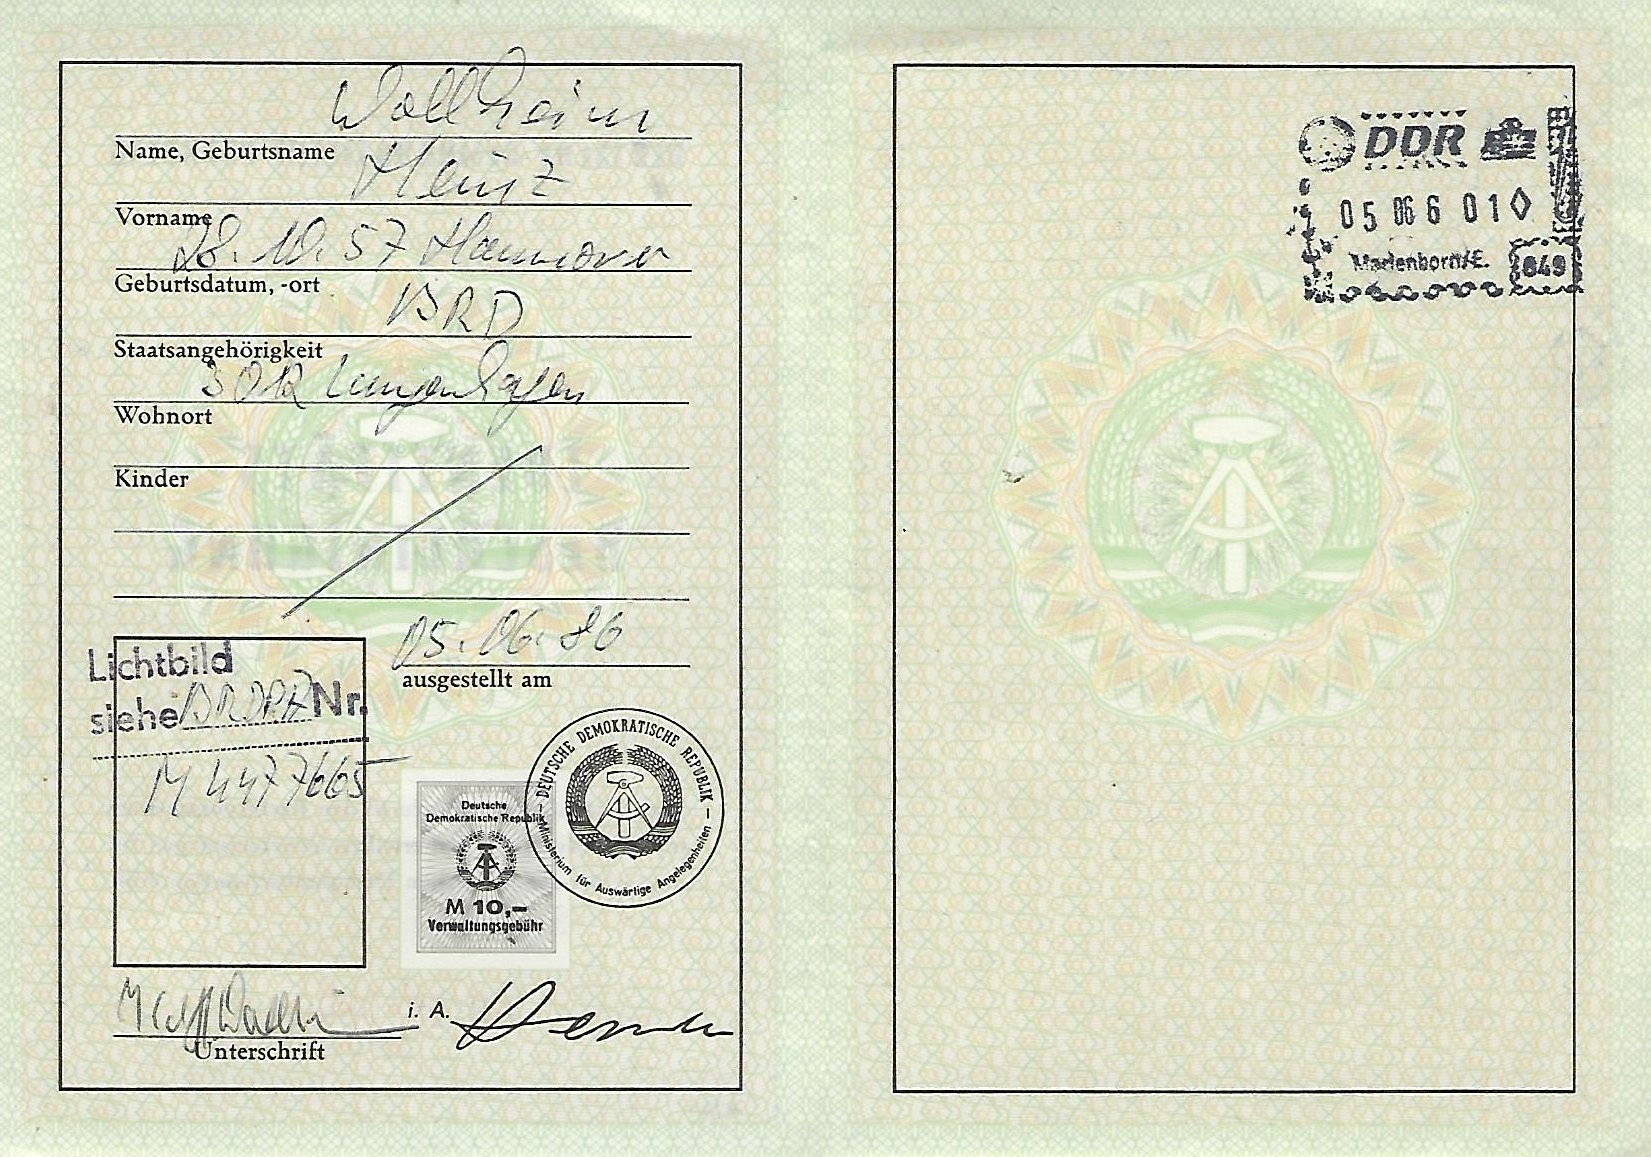 Wollheim
Name, Geburtsname
Heinz
Vorname
28.10.57 Hannover
Geburtsdatum, -ort
BRD
Staatsangehörigkeit
3012 Langenhagen
Wohnort
Kinder
05.06.86
ausgestellt am
Lichtbild
siehe BRDPA Nr.
M 4477665
DEUTSCHE DEMOKRATISCHE REPUBLIK
Ministerium für Auswärtige Angelegenheiten
Deutsche
Demokratische Republik
M 10,-
Verwaltungsgebühr
i. A.
Unterschrift
DDR
05 06 6 01
Marienborn/E. 849